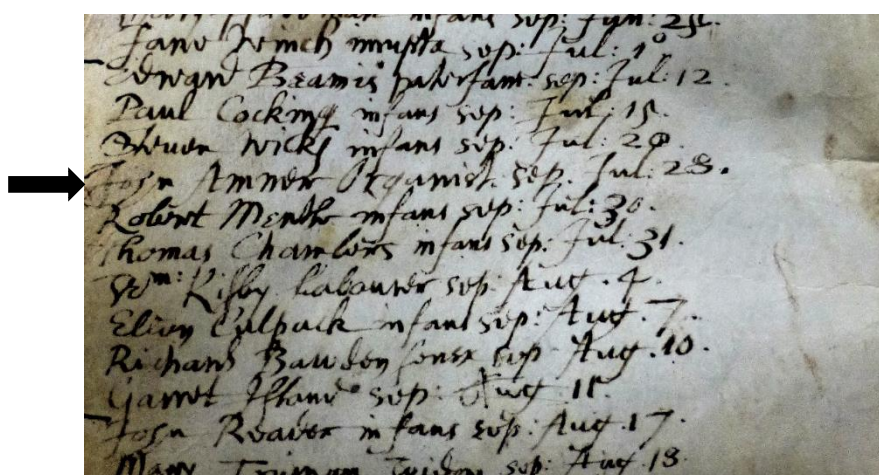 infans sep: Jun: 25.
Jane Winch innupta sep: Jul: 1°
Edward Beamis paterfam: sep: Jul: 12.
Paul Cocking infans sep: Jul: 15.
Steven Wicks infans sep: Jul: 20.
John Amner Organist. sep. Jul: 28.
Robert infans sep: Jul: 30.
Thomas Chambers infans sep: Jul: 31.
Wm: Kisby Labourer sep: Aug. 4.
Culpack infans sep: Aug. 7.
Richard Bawden senex sep Aug. 10.
Garret sep: Aug 11.
John Reader infans sep: Aug. 17.
Mary sep: Aug. 18.